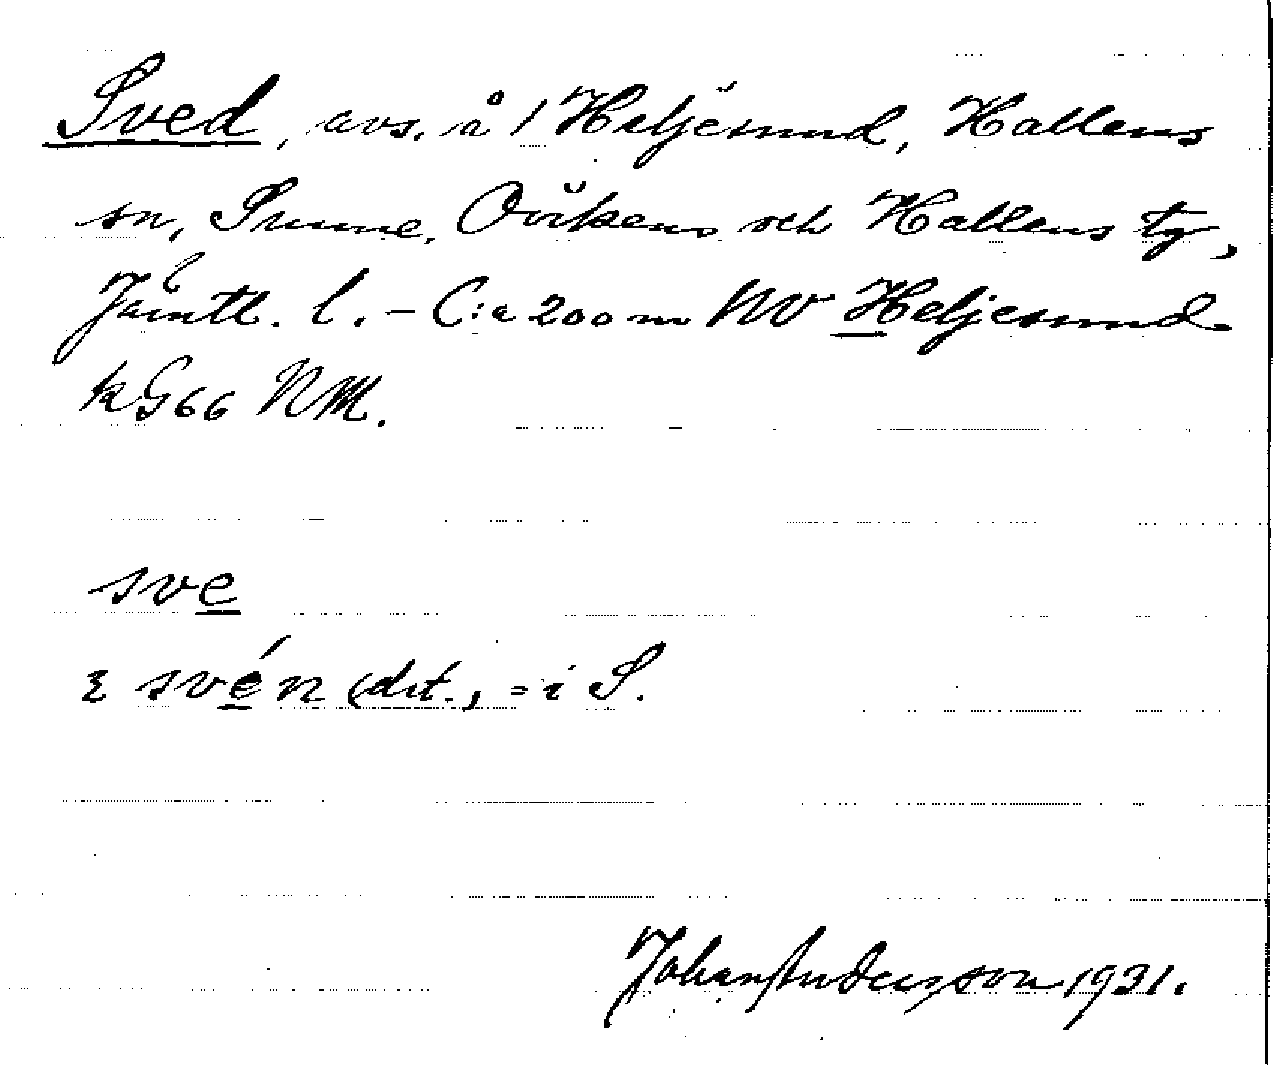 Sved, avs. å 1 Heljesund, Hallens
sn, Sunne, Ovikens och Hallens tg,
Jämtl. l. – C:a 200 m NV Heljesund
k G66 NM.
sve
svén (det., = i S.
Johan Andersson 1931.